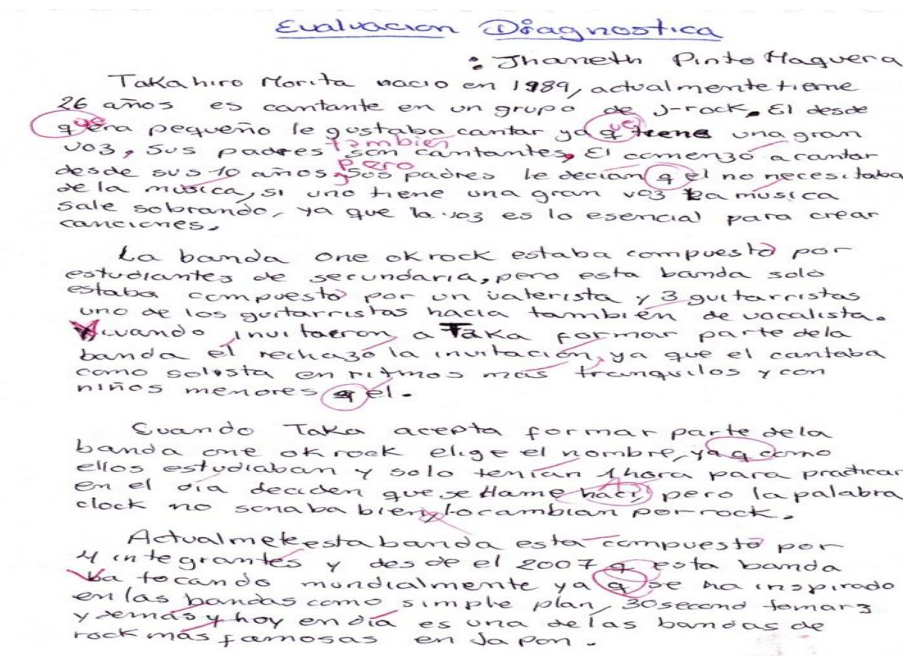 Evaluacion Diagnostica
: Jhaneth Pinto Maquera
Takahiro Morita nacio en 1989, actualmente tiene
26 años es cantante en un grupo de J-rock. El desde
que era pequeño le gustaba cantar ya que tiene una gran
voz, sus padres también son cantantes, El comenzó a cantar
desde sus 10 años, pero sus padres le decían q el no necesitaba
de la música, si uno tiene una gran voz la música
sale sobrando, ya que la voz es lo esencial para crear
canciones.
La banda one ok rock estaba compuesto por
estudiantes de secundaria, pero esta banda solo
estaba compuesto por un baterista y 3 guitarristas
uno de los guitarristas hacia también de vocalista.
Cuando invitaeron a Taka formar parte dela
banda él rechazo la invitación, ya que el cantaba
como solista en ritmos más tranquilos y con
niños menores q él.
Cuando Taka acepta formar parte dela
banda one ok rock elige el nombre, ya q como
ellos estudiaban y solo tenían 1 hora para practicar
en el día deciden que se llame haci, pero la palabra
clock no sonaba bien, lo cambian por rock.
Actualmete esta banda esta compuesto por
4 integrantes y desde el 2007 q esta banda
va tocando mundialmente ya q se ha inspirado
en las bandas como simple plan, 30 second tomarz
y demás y hoy en día es una delas bandas de
rock más famosas en Japon.